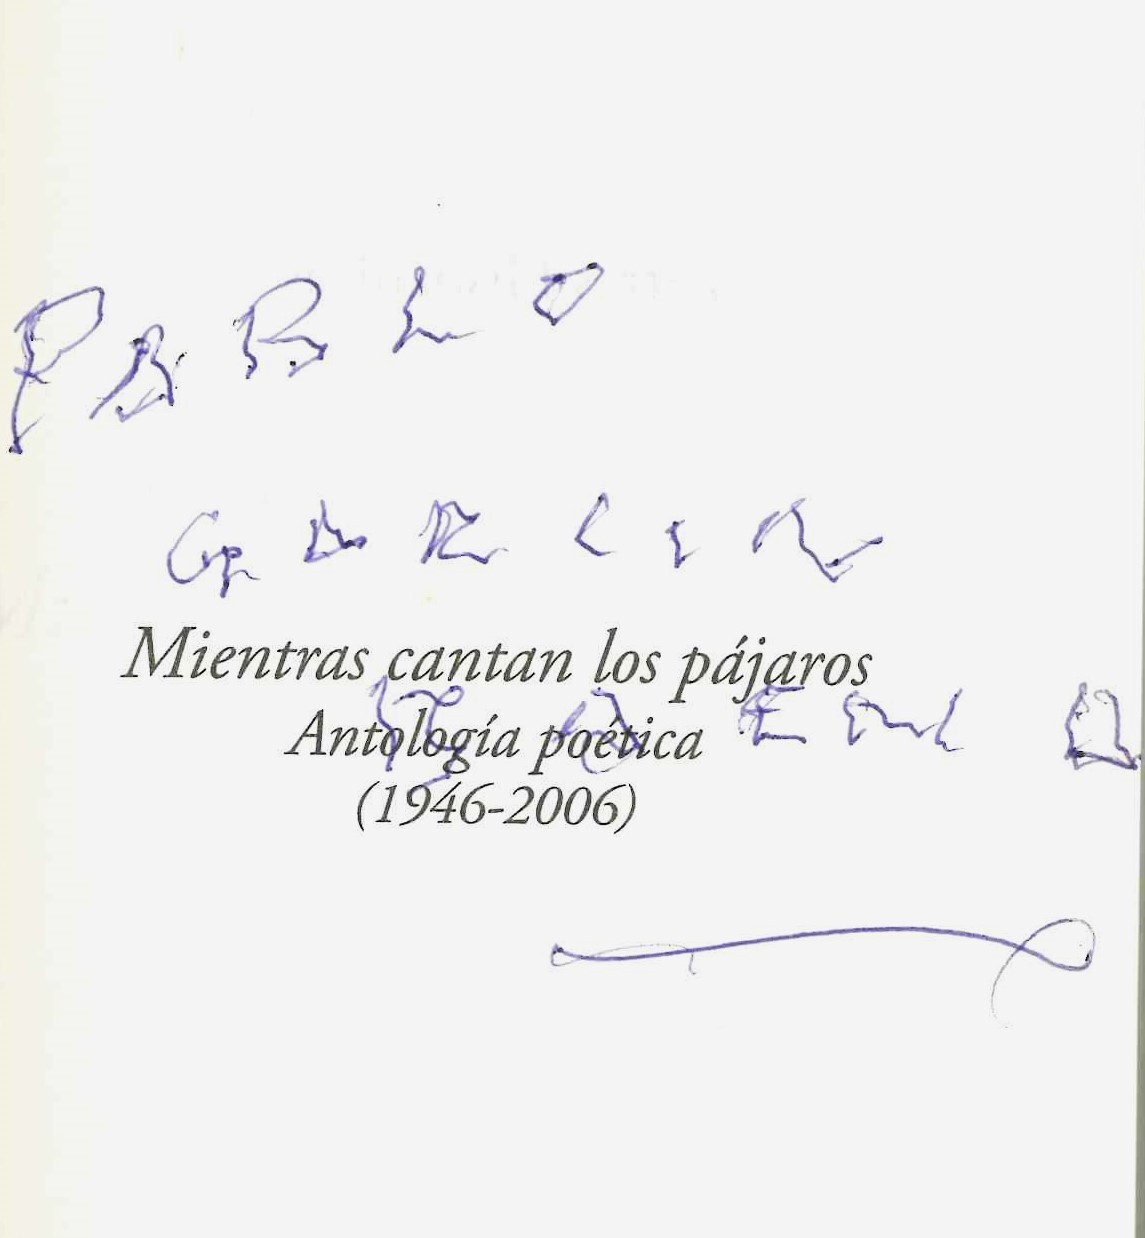 PABLO
GARCIA
Mientras cantan los pájaros
Antología poética
(1946-2006)